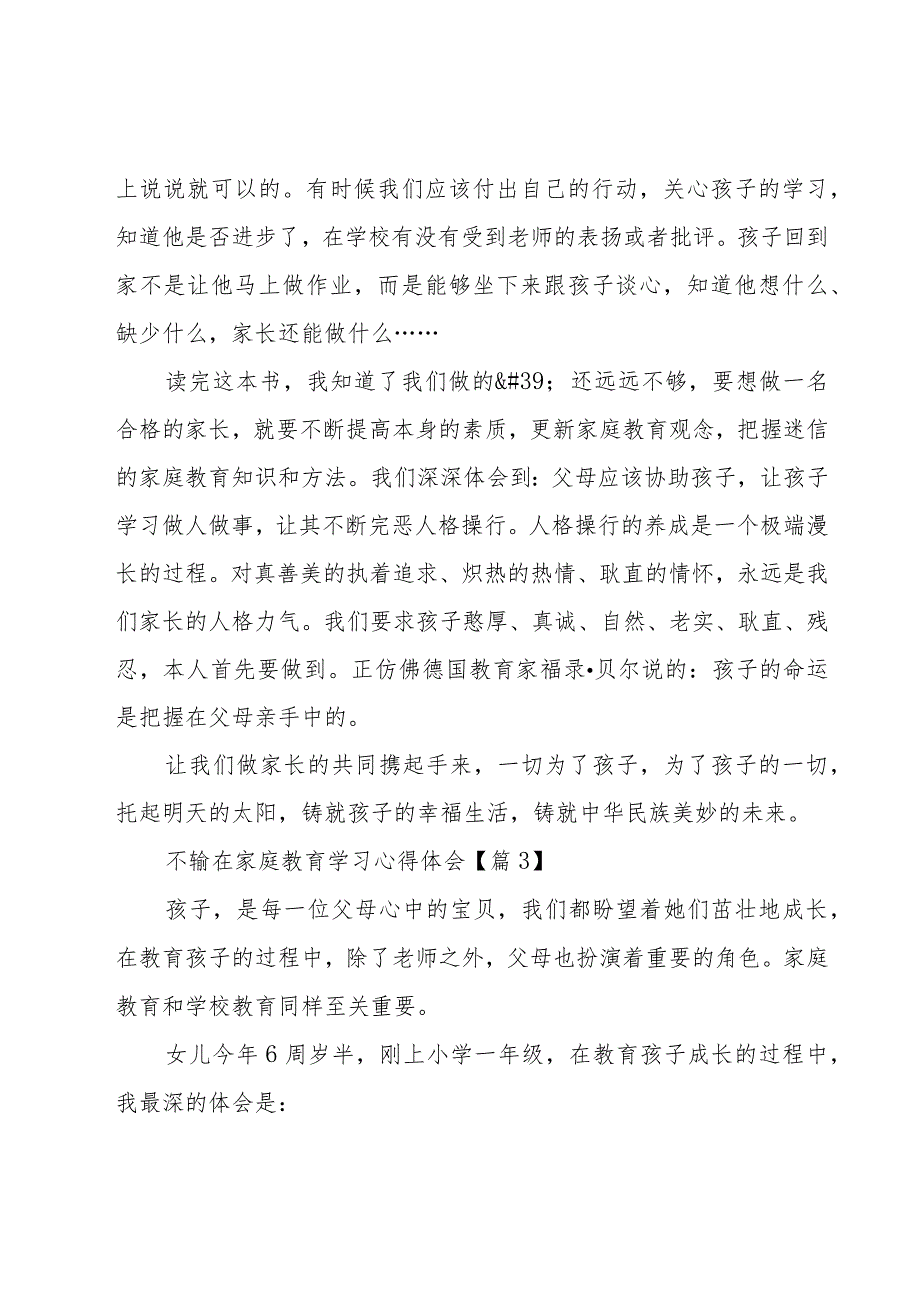 上说说就可以的。有时候我们应该付出自己的行动，关心孩子的学习，
知道他是否进步了，在学校有没有受到老师的表扬或者批评。孩子回到
家不是让他马上做作业，而是能够坐下来跟孩子谈心，知道他想什么、
缺少什么，家长还能做什么……
读完这本书，我知道了我们做的&#39；还远远不够，要想做一名
合格的家长，就要不断提高本身的素质，更新家庭教育观念，把握迷信
的家庭教育知识和方法。我们深深体会到：父母应该协助孩子，让孩子
学习做人做事，让其不断完恶人格操行。人格操行的养成是一个极端漫
长的过程。对真善美的执着追求、炽热的热情、耿直的情怀，永远是我
们家长的人格力气。我们要求孩子憨厚、真诚、自然、老实、耿直、残
忍，本人首先要做到。正仿佛德国教育家福录•贝尔说的：孩子的命运
是把握在父母亲手中的。
让我们做家长的共同携起手来，一切为了孩子，为了孩子的一切，
托起明天的太阳，铸就孩子的幸福生活，铸就中华民族美妙的未来。
不输在家庭教育学习心得体会【篇3】
孩子，是每一位父母心中的宝贝，我们都盼望着她们茁壮地成长，
在教育孩子的过程中，除了老师之外，父母也扮演着重要的角色。家庭
教育和学校教育同样至关重要。
女儿今年6周岁半，刚上小学一年级，在教育孩子成长的过程中，
我最深的体会是：